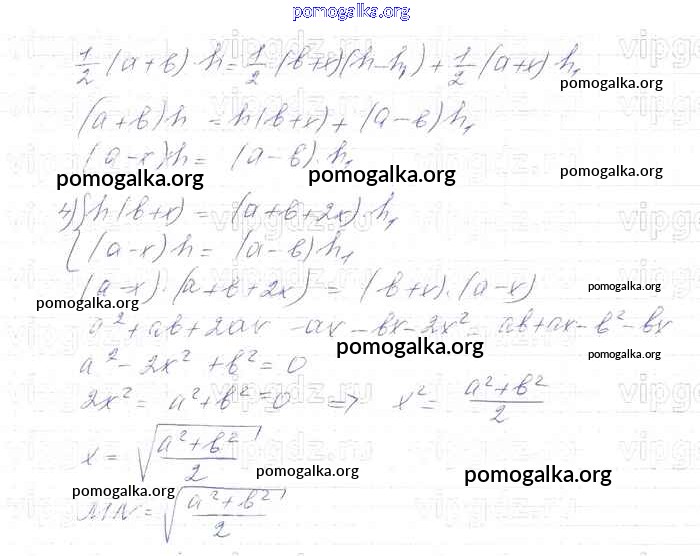 pomogalka.org
1/2 (a+в)·h = 1/2 (в+x)(h-h₁) + 1/2 (a+x)·h₁
pomogalka.org
(a+в)h = h(в+x) + (a-в)h₁
(a-x)·h = (a-в)·h₁
pomogalka.org pomogalka.org pomogalka.org
4) { h(в+x) = (a+в+2x)·h₁
(a-x)h = (a-в)h₁
(a-x)·(a+в+2x) = (в+x)·(a-x)
pomogalka.org
pomogalka.org
a²+aв+2ax -ax -вx-2x² = aв+ax-в²-вx
pomogalka.org
a²-2x²+в²=0
pomogalka.org
2x²= a²+в²=0 => x²= (a²+в²)/2
x = √((a²+в²)/2)
pomogalka.org
pomogalka.org
pomogalka.org
MN = √((a²+в²)/2)